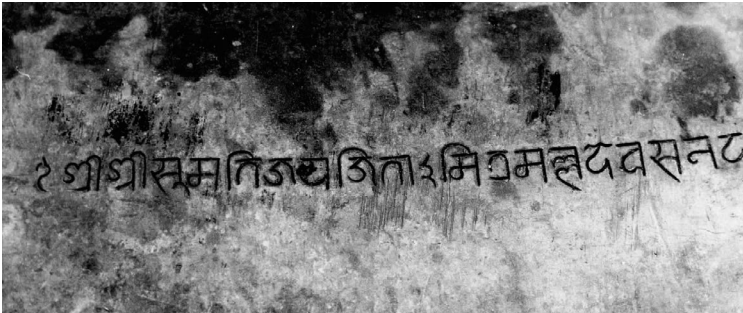 १ श्रीश्रीसुमतिजयजिताऽमित्रमल्लदवसनद